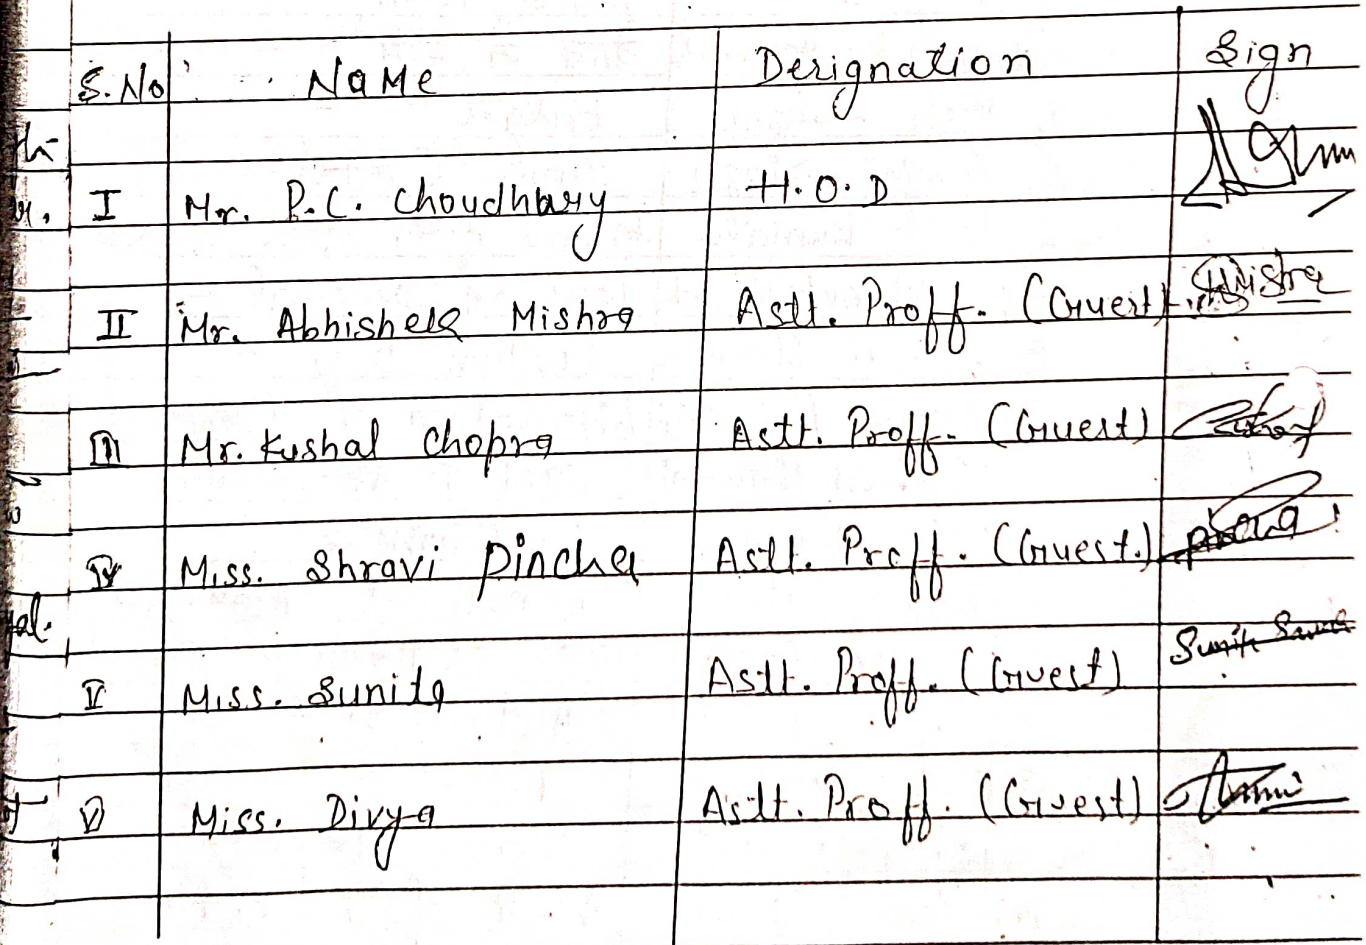 S.No NaMe Designation Sign
I Mr. P.C. Choudhary H.O.D
II Mr. Abhishek Mishra Astt. Proff. (Guest) Mishra
III Mr. Kushal Chopra Astt. Proff. (Guest)
IV Miss. Shravi Pincha Astt. Proff. (Guest.)
V Miss. Sunita Astt. Proff. (Guest) Sunita
V Miss. Divya Astt. Proff. (Guest)